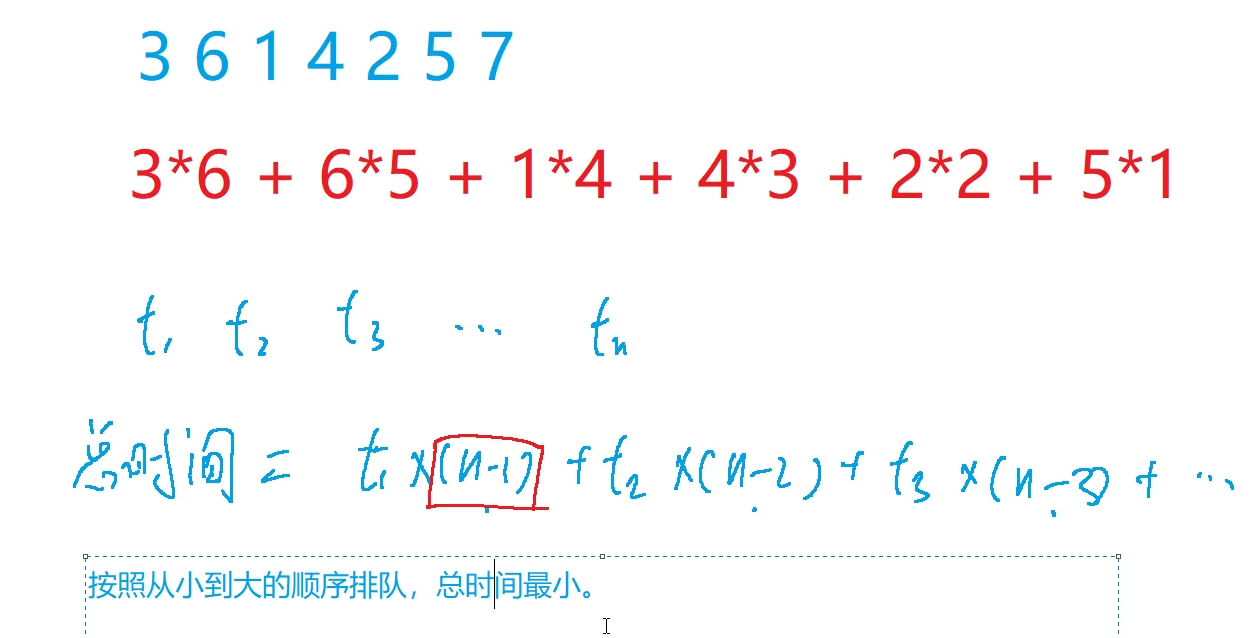 3 6 1 4 2 5 7
3*6 + 6*5 + 1*4 + 4*3 + 2*2 + 5*1
t₁ t₂ t₃ ... tₙ
总时间 = t₁ ×(n-1) + t₂ ×(n-2) + t₃ ×(n-3) + ...
按照从小到大的顺序排队，总时间最小。